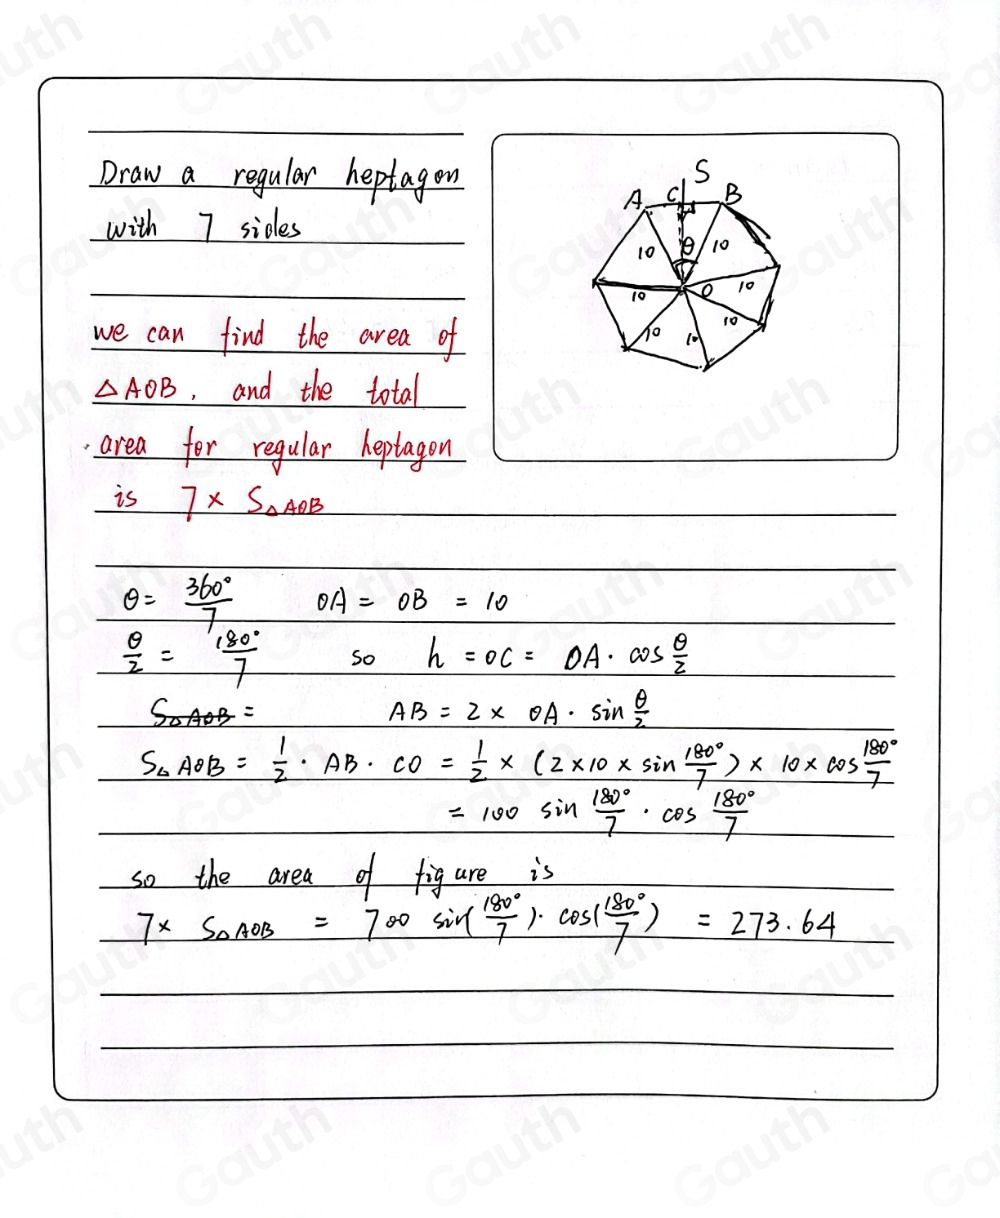 Draw a regular heptagon
with 7 sides
we can find the area of
△AOB, and the total
area for regular heptagon
is 7 × S△AOB
S
A C B
10 θ 10
10 O 10
10 10 10
θ = 360°/7 OA = OB = 10
θ/2 = 180°/7 so h = OC = OA · cos θ/2
S△AOB = AB = 2 × OA · sin θ/2
S△AOB = 1/2 · AB · CO = 1/2 × (2×10 × sin 180°/7) × 10 × cos 180°/7
= 100 sin 180°/7 · cos 180°/7
so the area of figure is
7× S△AOB = 700 sin(180°/7) · cos(180°/7) = 273.64
Gauth